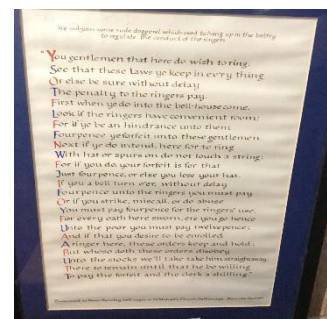 We subjoin some rude doggerel which used to hang up in the belfry
to regulate the conduct of the ringers
"You gentlemen that here do wish to ring,
See that these Laws ye keep in ev'ry thing
Or else be sure without delay
The penalty to the ringers pay.
First when ye do into the bell-house come,
Look if the ringers have convenient room;
For if ye be an hindrance unto them
Fourpence ye forfeit unto these gentlemen
Next if ye do intend here for to ring
With hat or spurs on do not touch a string;
For if you do your forfeit is for that
Just fourpence, or else you lose your hat.
If you a bell turn o'er, without delay
Fourpence unto the ringers you must pay
Or if you strike, miscall, or do abuse
You must pay fourpence for the ringers' use.
For every oath here sworn, ere you go hence
Unto the poor you must pay twelvepence;
And if that you desire to be enrolled
A ringer here, these orders keep and hold;
But whoso doth these orders disobey
Unto the stocks we'll take him straightaway.
There to remain until that he be willing
To pay the forfeit and the clerk a shilling."